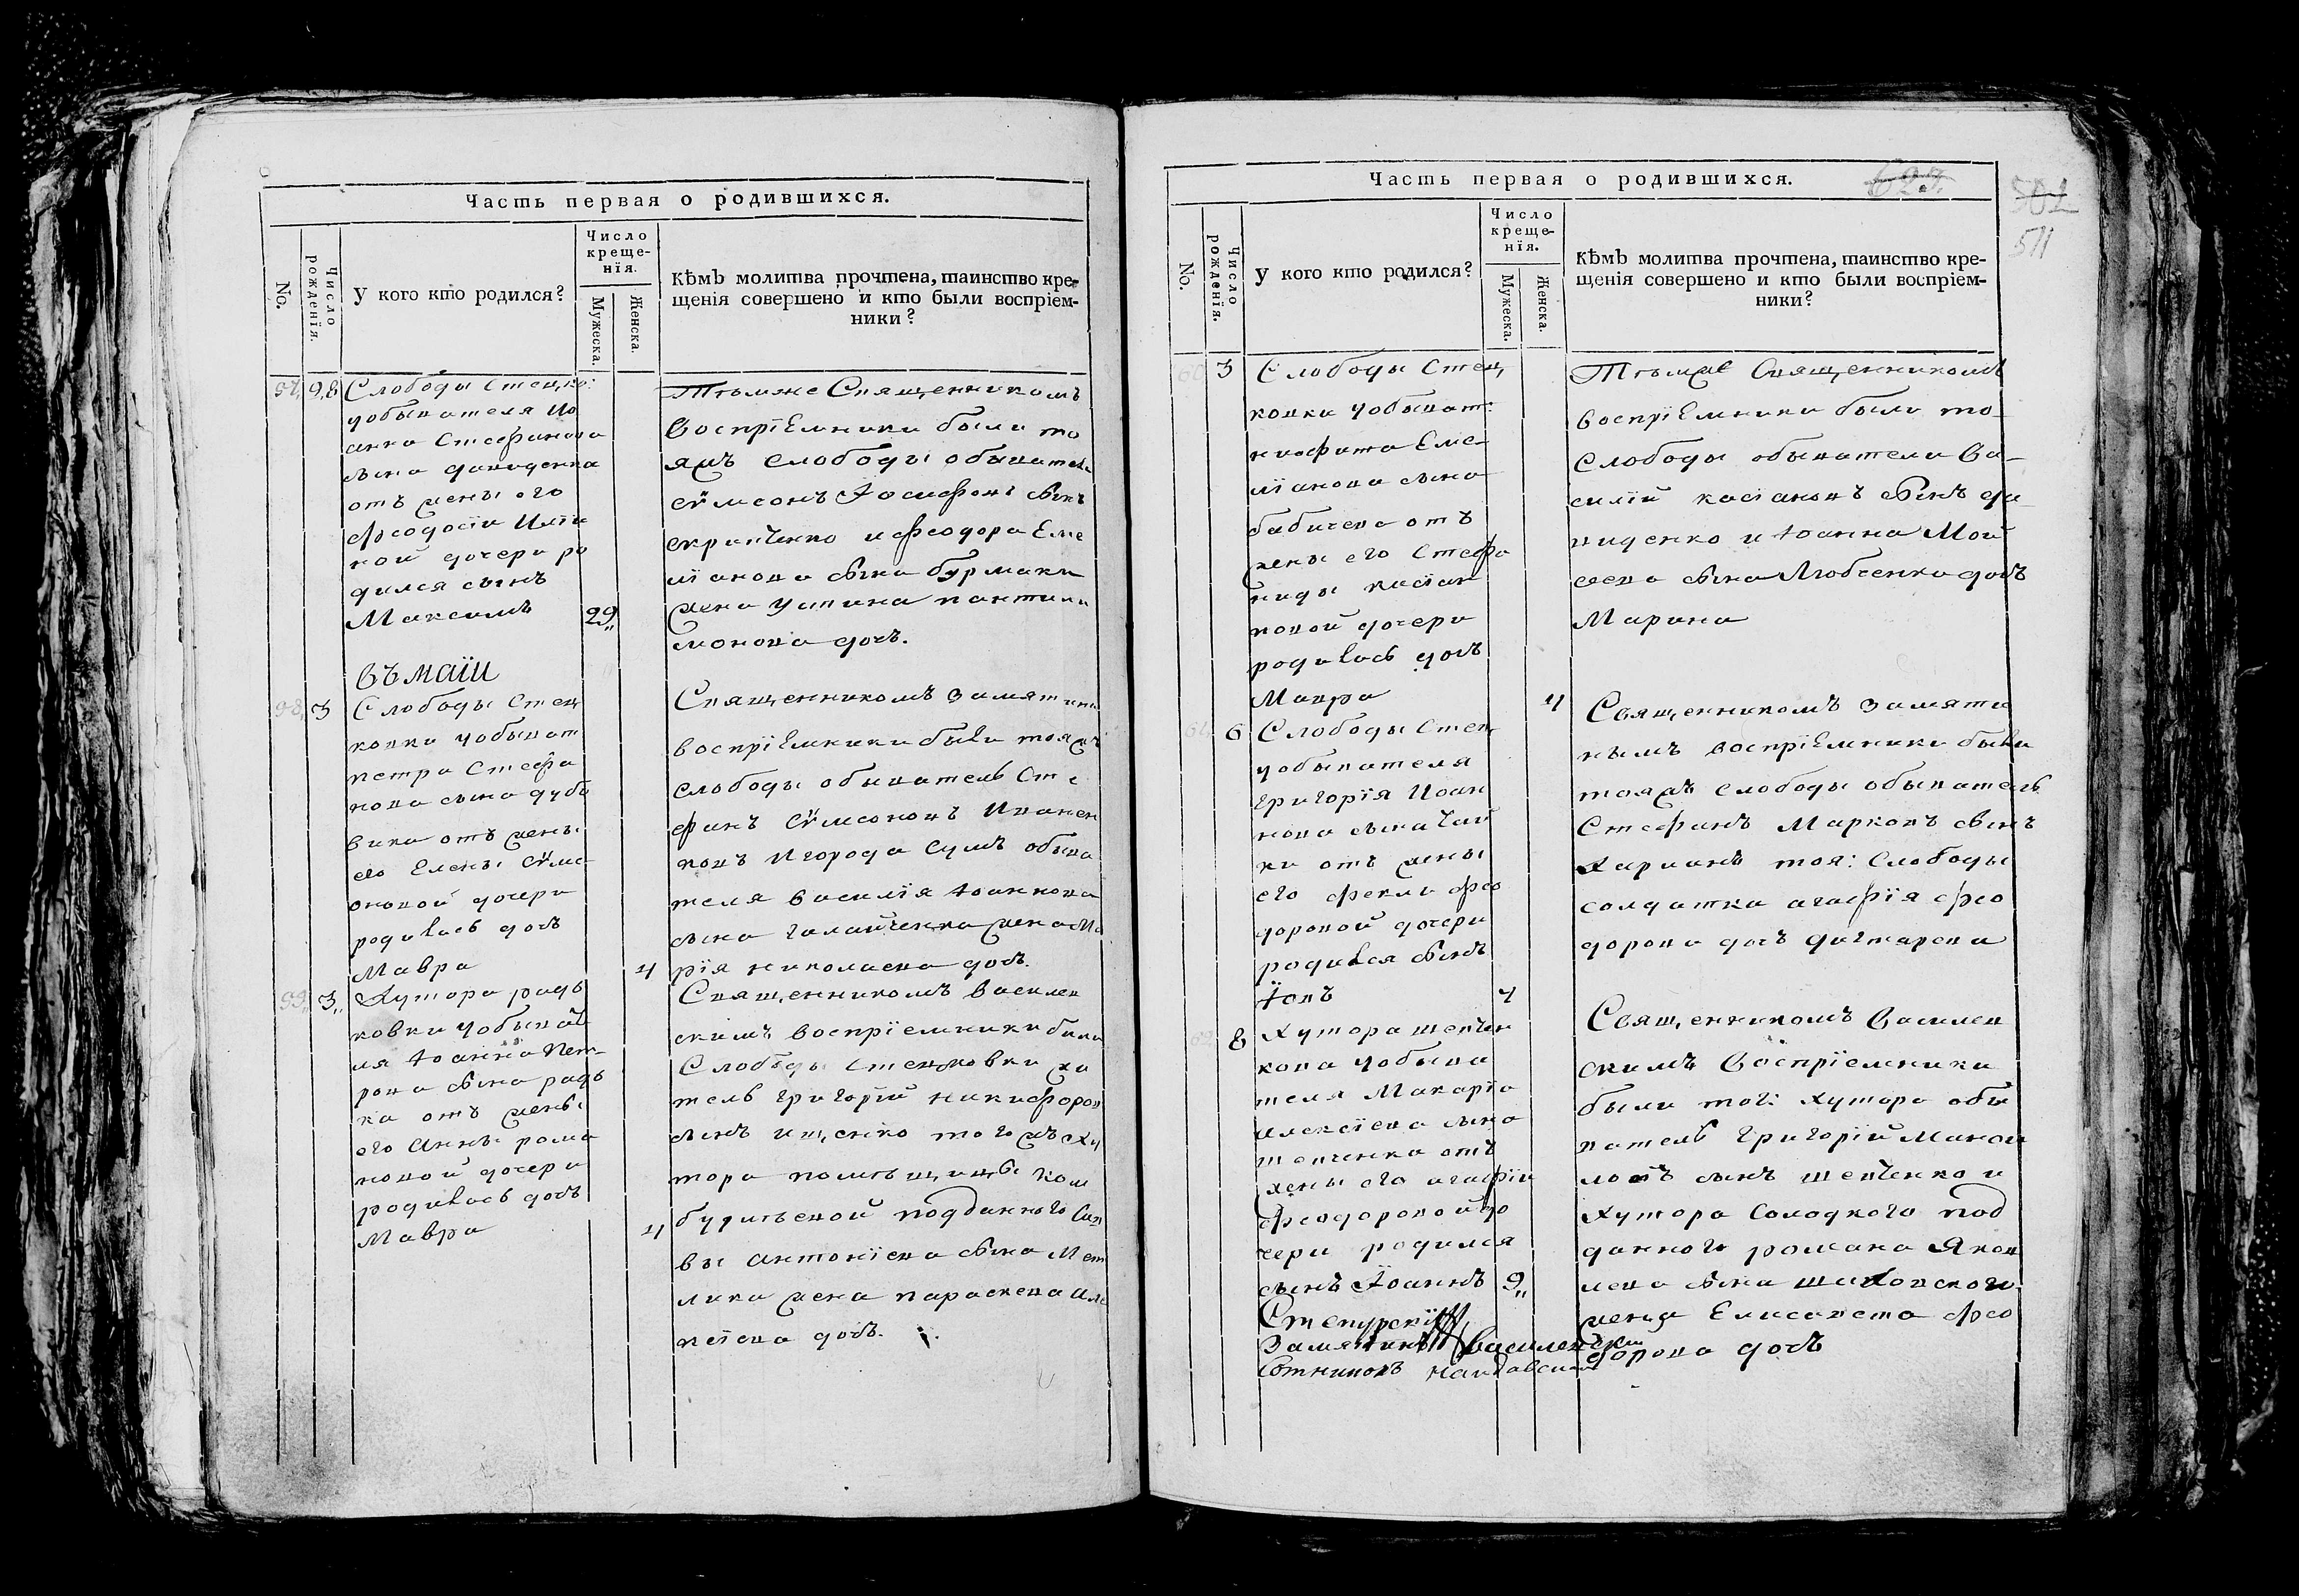 Часть первая о родившихся.
No.
Число рожденїя.
У кого кто родился?
Число
креще-
нїя.
Мужеска.
Женска.
Кѣмъ молитва прочтена, таинство кре-
щенія совершено и кто были воспріем-
ники?
57, 28 Слободы Стецко:
уобывателя Ио
анна Стефанова
сына давиденка
отъ жены его
феодосіи
ной дочери ро
дился сынъ
Максимъ 29
Тѣмже Священникомъ
Воспріемники были то
яжъ слободы обыватель
сѵмеонъ Іосифовъ сынъ
и феодора Еме
ліанова сына бурмаки
жена пантили
монова дочь.
въ маїи
58, 3 Слободы Стец
ковки уобыват
петра Стефа
нова сына дубо
вика отъ жены
его Елены сѵме
оновой дочери
родилась дочь
Мавра 4
Священникомъ Замятинымъ
воспріемники были тояжъ
слободы обыватель Сте
фанъ сѵмеоновъ Иванен
ковъ и города Сумъ обыва
теля василія Іоаннова
сына жена Ма
рія николаева дочь.
59, 3,, Хутора радь
ковки уобывате
ля Іоанна Пет-
рова сына радь
ка отъ жены
его Анны рома
новой дочери
родилась дочь
Мавра 4
Священникомъ василев
скимъ воспріемники были
Слободы стецковки жи
тель григорїй никифоров
сынъ ищенко тогожъ ху
тора помѣщицы Ком
бурлѣевой подданного Сав
вы антонїева сына Мет
лика жена параскева Але
ксїева дочь.
Часть первая о родившихся.
627.
501
511
No.
Число рожденїя.
У кого кто родился?
Число
креще-
нїя.
Мужеска.
Женска.
Кѣмъ молитва прочтена, таинство кре-
щенія совершено и кто были воспріем-
ники?
60 3 Слободы Стец
ковки уобыват:
никифита Еме-
ліанова сына
бабичева отъ
жены его Стефа
ниды касіан
новой дочери
родилась дочь
Мавра 4
Тѣмже Священникомъ
воспріемники были то
Слободы обыватели Ва-
силїй касіановъ сынъ да
виденко и Іоанна Мой
сеева сына Любченка дочь
Марина
61 6 Слободы Стец
уобывателя
григорїя Иоан
нова сына Чай
ки отъ жены
его феклы фео
доровой дочери
родился сынъ
Іовъ 7
Священникомъ Замяти
нымъ воспріемники были
тояжъ слободы обыватель
Стефанъ Марковъ сынъ
тоя: Слободы
солдатка агафїя фео
дорова дочь дигтярева
62 8 Хутора шевчен
кова уобыва
теля Макарїа
Алексїева сына
шевченка отъ
жены его агафїи
феодоровой до
чери родился
сынъ Іоаннъ 9,,
Священникомъ Василев
скимъ Воспріемники
были того: хутора обы
ватель григорїй Манои
ловъ сынъ шевченко и
хутора Солодкого под
данного романа Яков
лева сына шаховского
жена Елисавета фео
дорова дочь
Степурскїй
Замятинъ Василевскїй
Сотниковъ